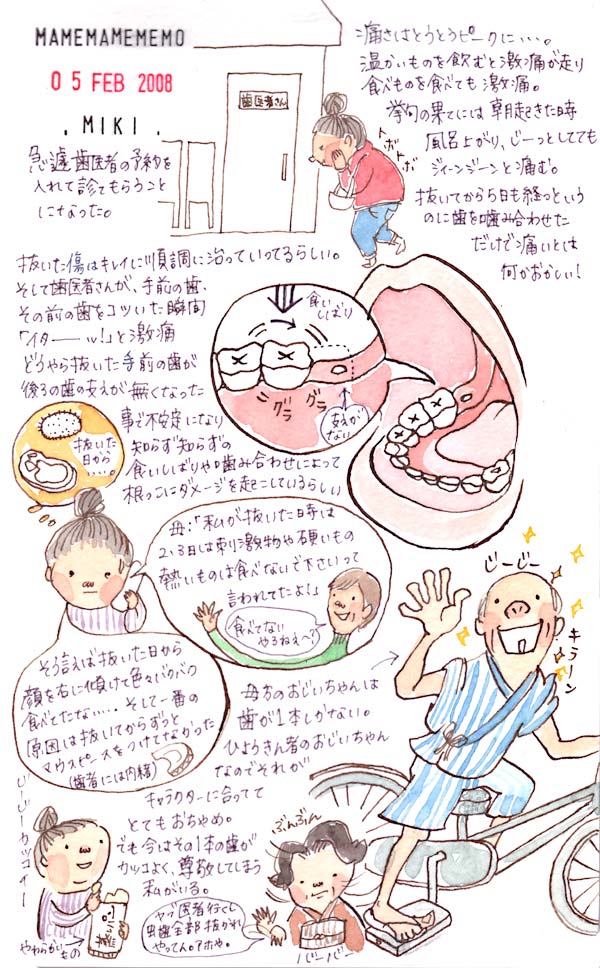 MAMEMAMEMEMO
05 FEB 2008
.MIKI.
急遽歯医者の予約を
入れて診てもらうこと
になった。
歯医者さん
トボトボ
痛さはとうとうピークに…。
温かいものを飲むと激痛が走り
食べものを食べても激痛。
挙句の果てには朝起きた時
風呂上がり、じーっとしてても
ジィーンジーンと痛む。
抜いてから5日も経っという
のに歯を噛み合わせた
だけで痛いとは
何かおかしい!
抜いた傷はキレイに順調に治っていってるらしい。
そして歯医者さんが、手前の歯、
その前の歯をコツいた瞬間
「イターーッ!」と激痛
どうやら抜いた手前の歯が
後ろの歯の支えが無くなった
事で不安定になり
知らず知らずの
食いしばりや噛み合わせによって
根っこにダメージを起こしているらしい
食い
しばり
グラ
グラ
支えが
ない
抜いた
日から
…。
母:「私が抜いた日時は
2、3日は刺激物や硬いもの
熱いものは食べないで下さいって
言われてたよ!」
食べてない
やろねえ〜?
そう言えば抜いた日から
顔を右に傾けて色々バクバク
食べとたな…。そして一番の
原因は抜いてからずっと
マウスピースをつけてなかった
(歯者には内緒)
じーじー
キラーン
母方のおじいちゃんは
歯が1本しかない。
ひょうきん者のおじいちゃん
なのでそれが
キャラクターに合ってて
とてもおちゃめ。
でも今はその1本の歯が
カッコよく、尊敬してしまう
私がいる。
じーじーカッコイー
やわらかいもの
ぶんぶん
ヤブ医者行くし
出歯全部抜かれ
やってん。アホや。
バーバー